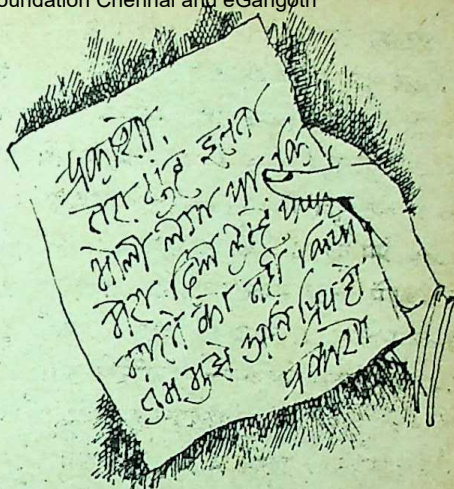 oundation Chennai and eGangotri
प्रकाश,
इतना
भोला लगा था कि
मेरा दिल तुम्हें
को नहीं किया
तुम मुझे अति प्रिय हो
प्रकाश